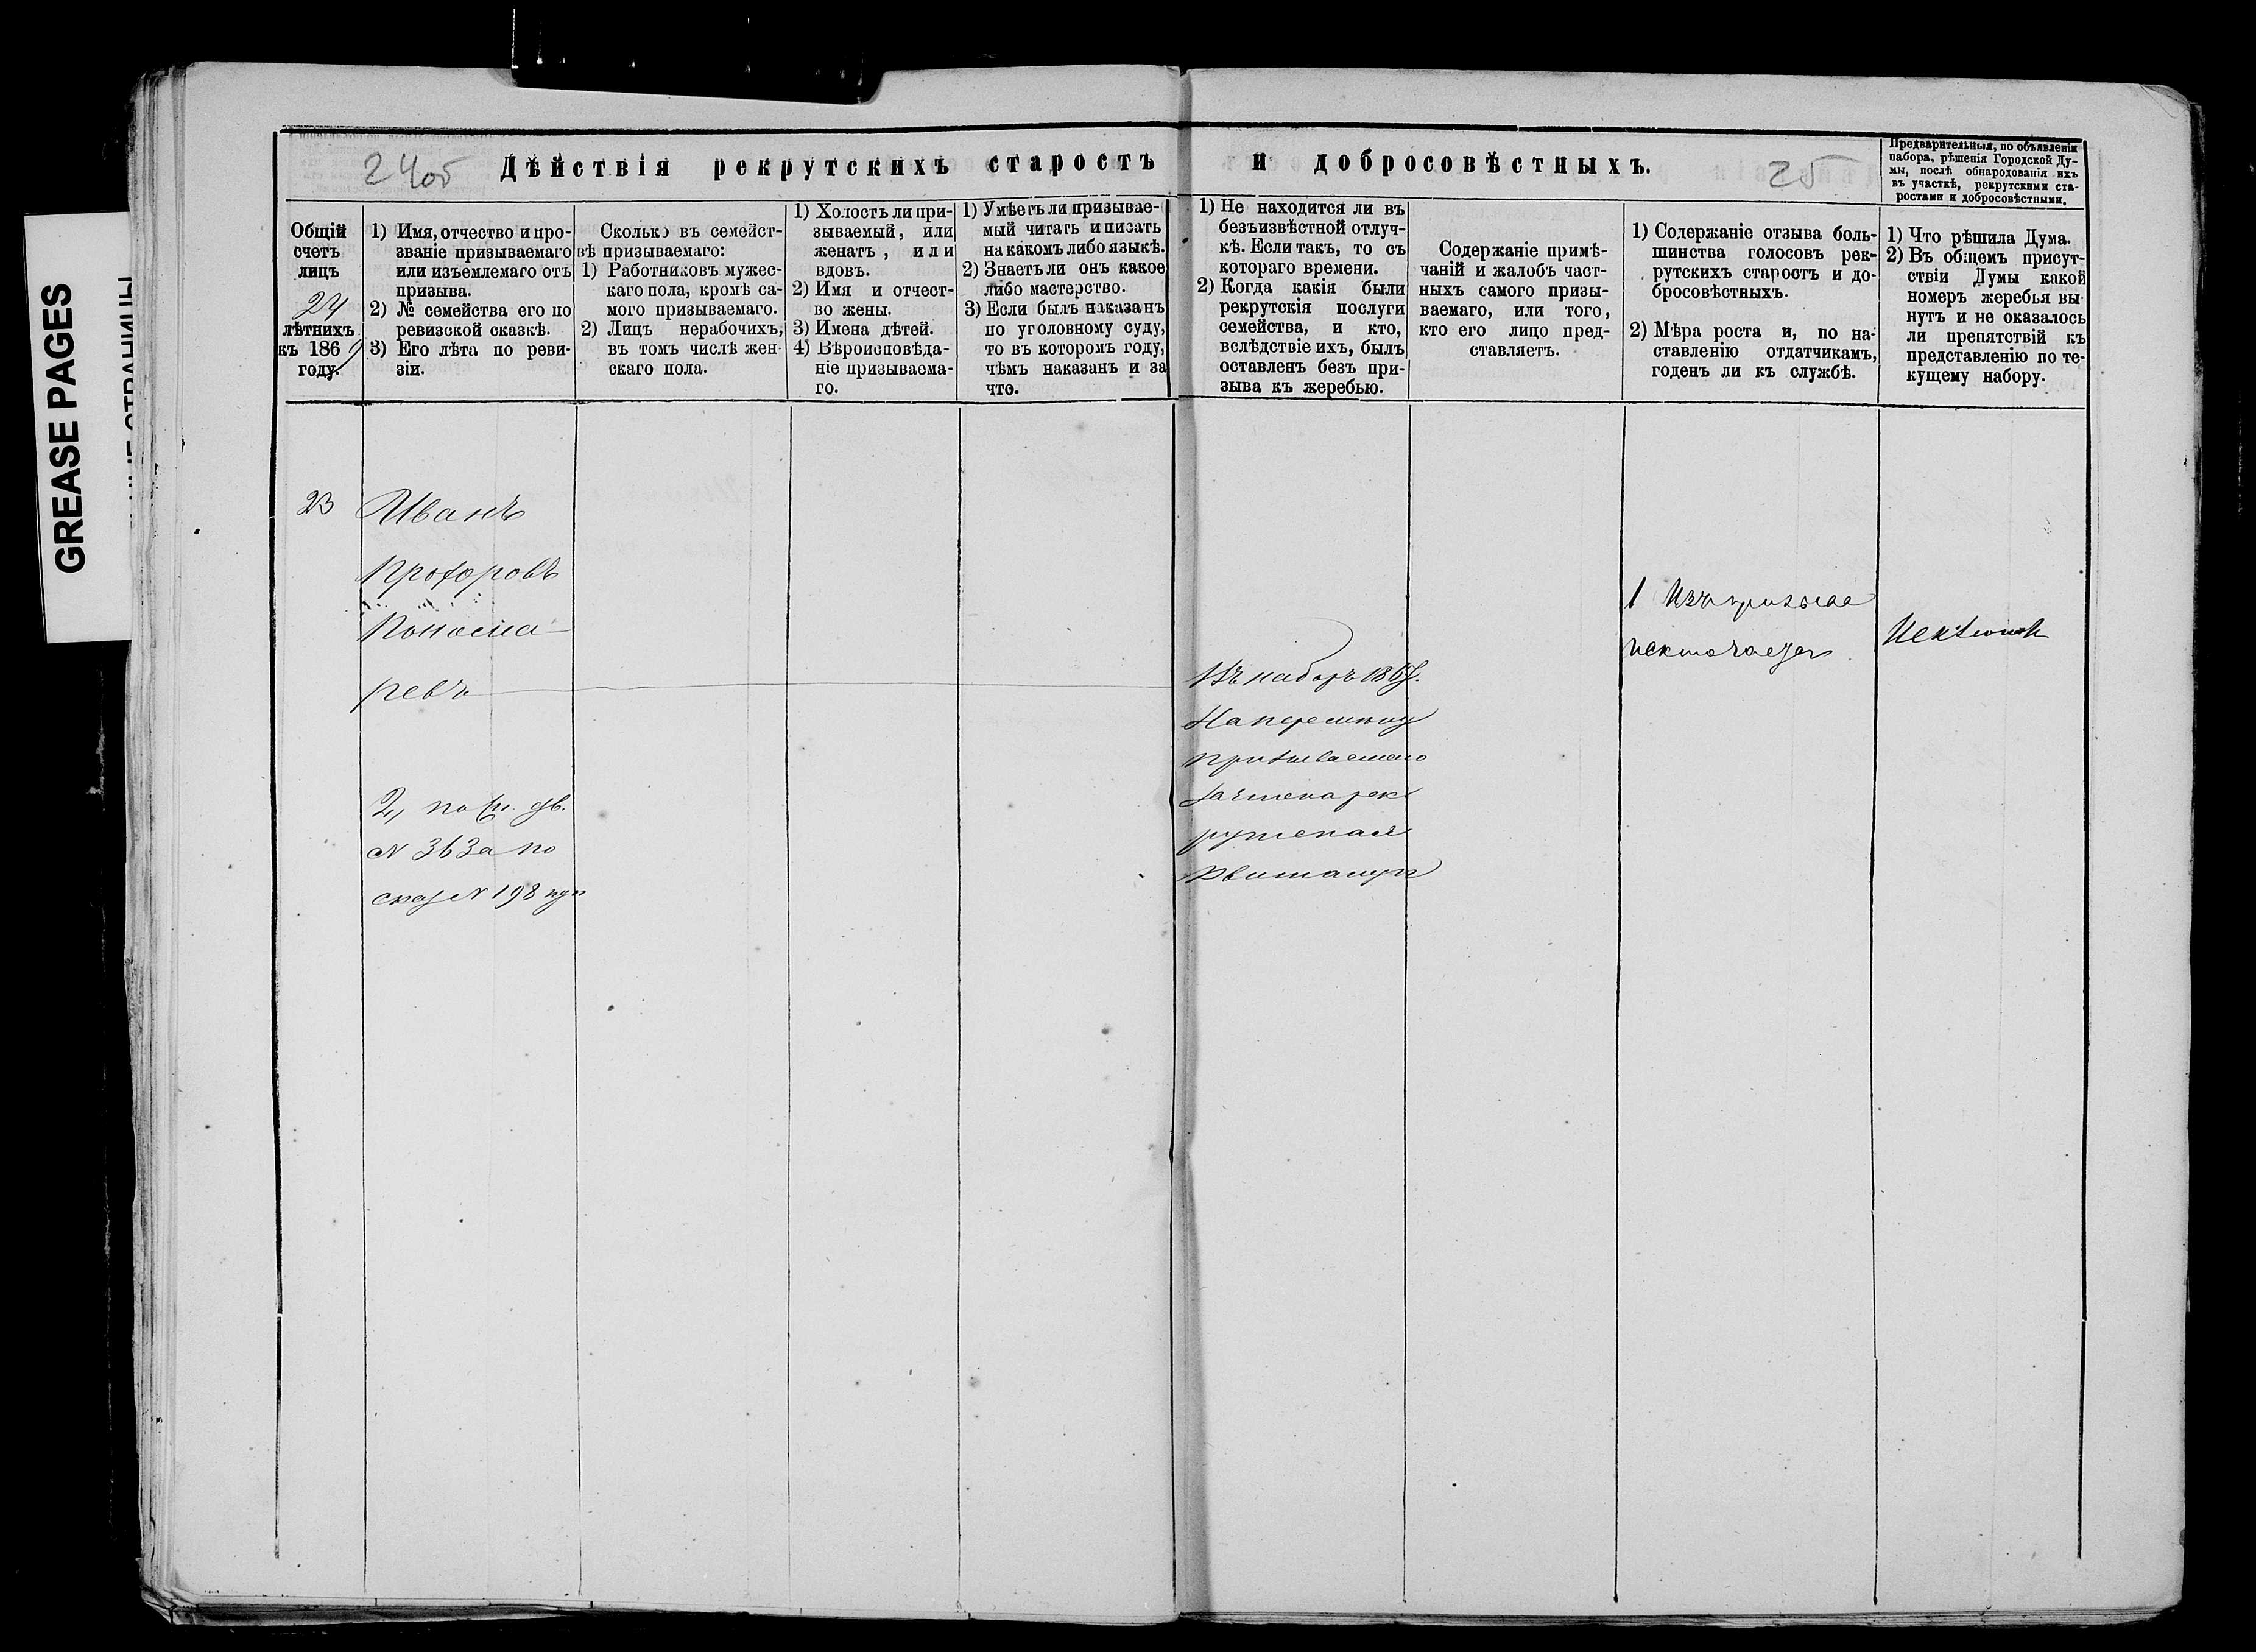 GREASE PAGES
24об
Дѣйствія рекрутскихъ старостъ и добросовѣстныхъ.
25
Предварительныя, по объявленіи
набора, рѣшенія Городской Ду-
мы, послѣ обнародованія ихъ
въ участкѣ, рекрутскими ста-
ростами и добросовѣстными.
Общій
счетъ
лицъ
24
лѣтнихъ
къ 1869
году.
1) Имя, отчество и про-
званіе призываемаго
или изъемлемаго отъ
призыва.
2) № семейства его по
ревизской сказкѣ.
3) Его лѣта по реви-
зіи.
Сколько въ семейст-
вѣ призываемаго:
1) Работниковъ мужес-
каго пола, кромѣ са-
мого призываемаго.
2) Лицъ нерабочихъ,
въ томъ числѣ жен-
скаго пола.
1) Холостъ ли при-
зываемый, или
женатъ, или
вдовъ.
2) Имя и отчест-
во жены.
3) Имена дѣтей.
4) Вѣроисповѣда-
ніе призываема-
го.
1) Умѣетъ ли призывае-
мый читать и писать
на какомъ либо языкѣ.
2) Знаетъ ли онъ какое
либо мастерство.
3) Если былъ наказанъ
по уголовному суду,
то въ которомъ году,
чѣмъ наказанъ и за
что.
1) Не находится ли въ
безъизвѣстной отлуч-
кѣ. Если такъ, то съ
котораго времени.
2) Когда какія были
рекрутскія послуги
семейства, и кто,
вслѣдствіе ихъ, былъ
оставленъ безъ при-
зыва къ жеребью.
Содержаніе примѣ-
чаній и жалобъ част-
ныхъ самого призы-
ваемаго, или того,
кто его лицо пред-
ставляетъ.
1) Содержаніе отзыва боль-
шинства голосовъ рек-
рутскихъ старостъ и до-
бросовѣстныхъ.
2) Мѣра роста и, по на-
ставленію отдатчикамъ,
годенъ ли къ службѣ.
1) Что рѣшила Дума.
2) Въ общемъ присут-
ствіи Думы какой
номеръ жеребья вы-
нутъ и не оказалось
ли препятствій къ
представленію по те-
кущему набору.
23
Иванъ
Прохоровъ
Пономa-
ревъ
2, по
№ 363а по
сказ № 198
Въ наборъ 1867.
На перемѣну
призываемаго
зачтена рек
рутская
Квитанція
1 Изъ призыва
исключается
Исключить